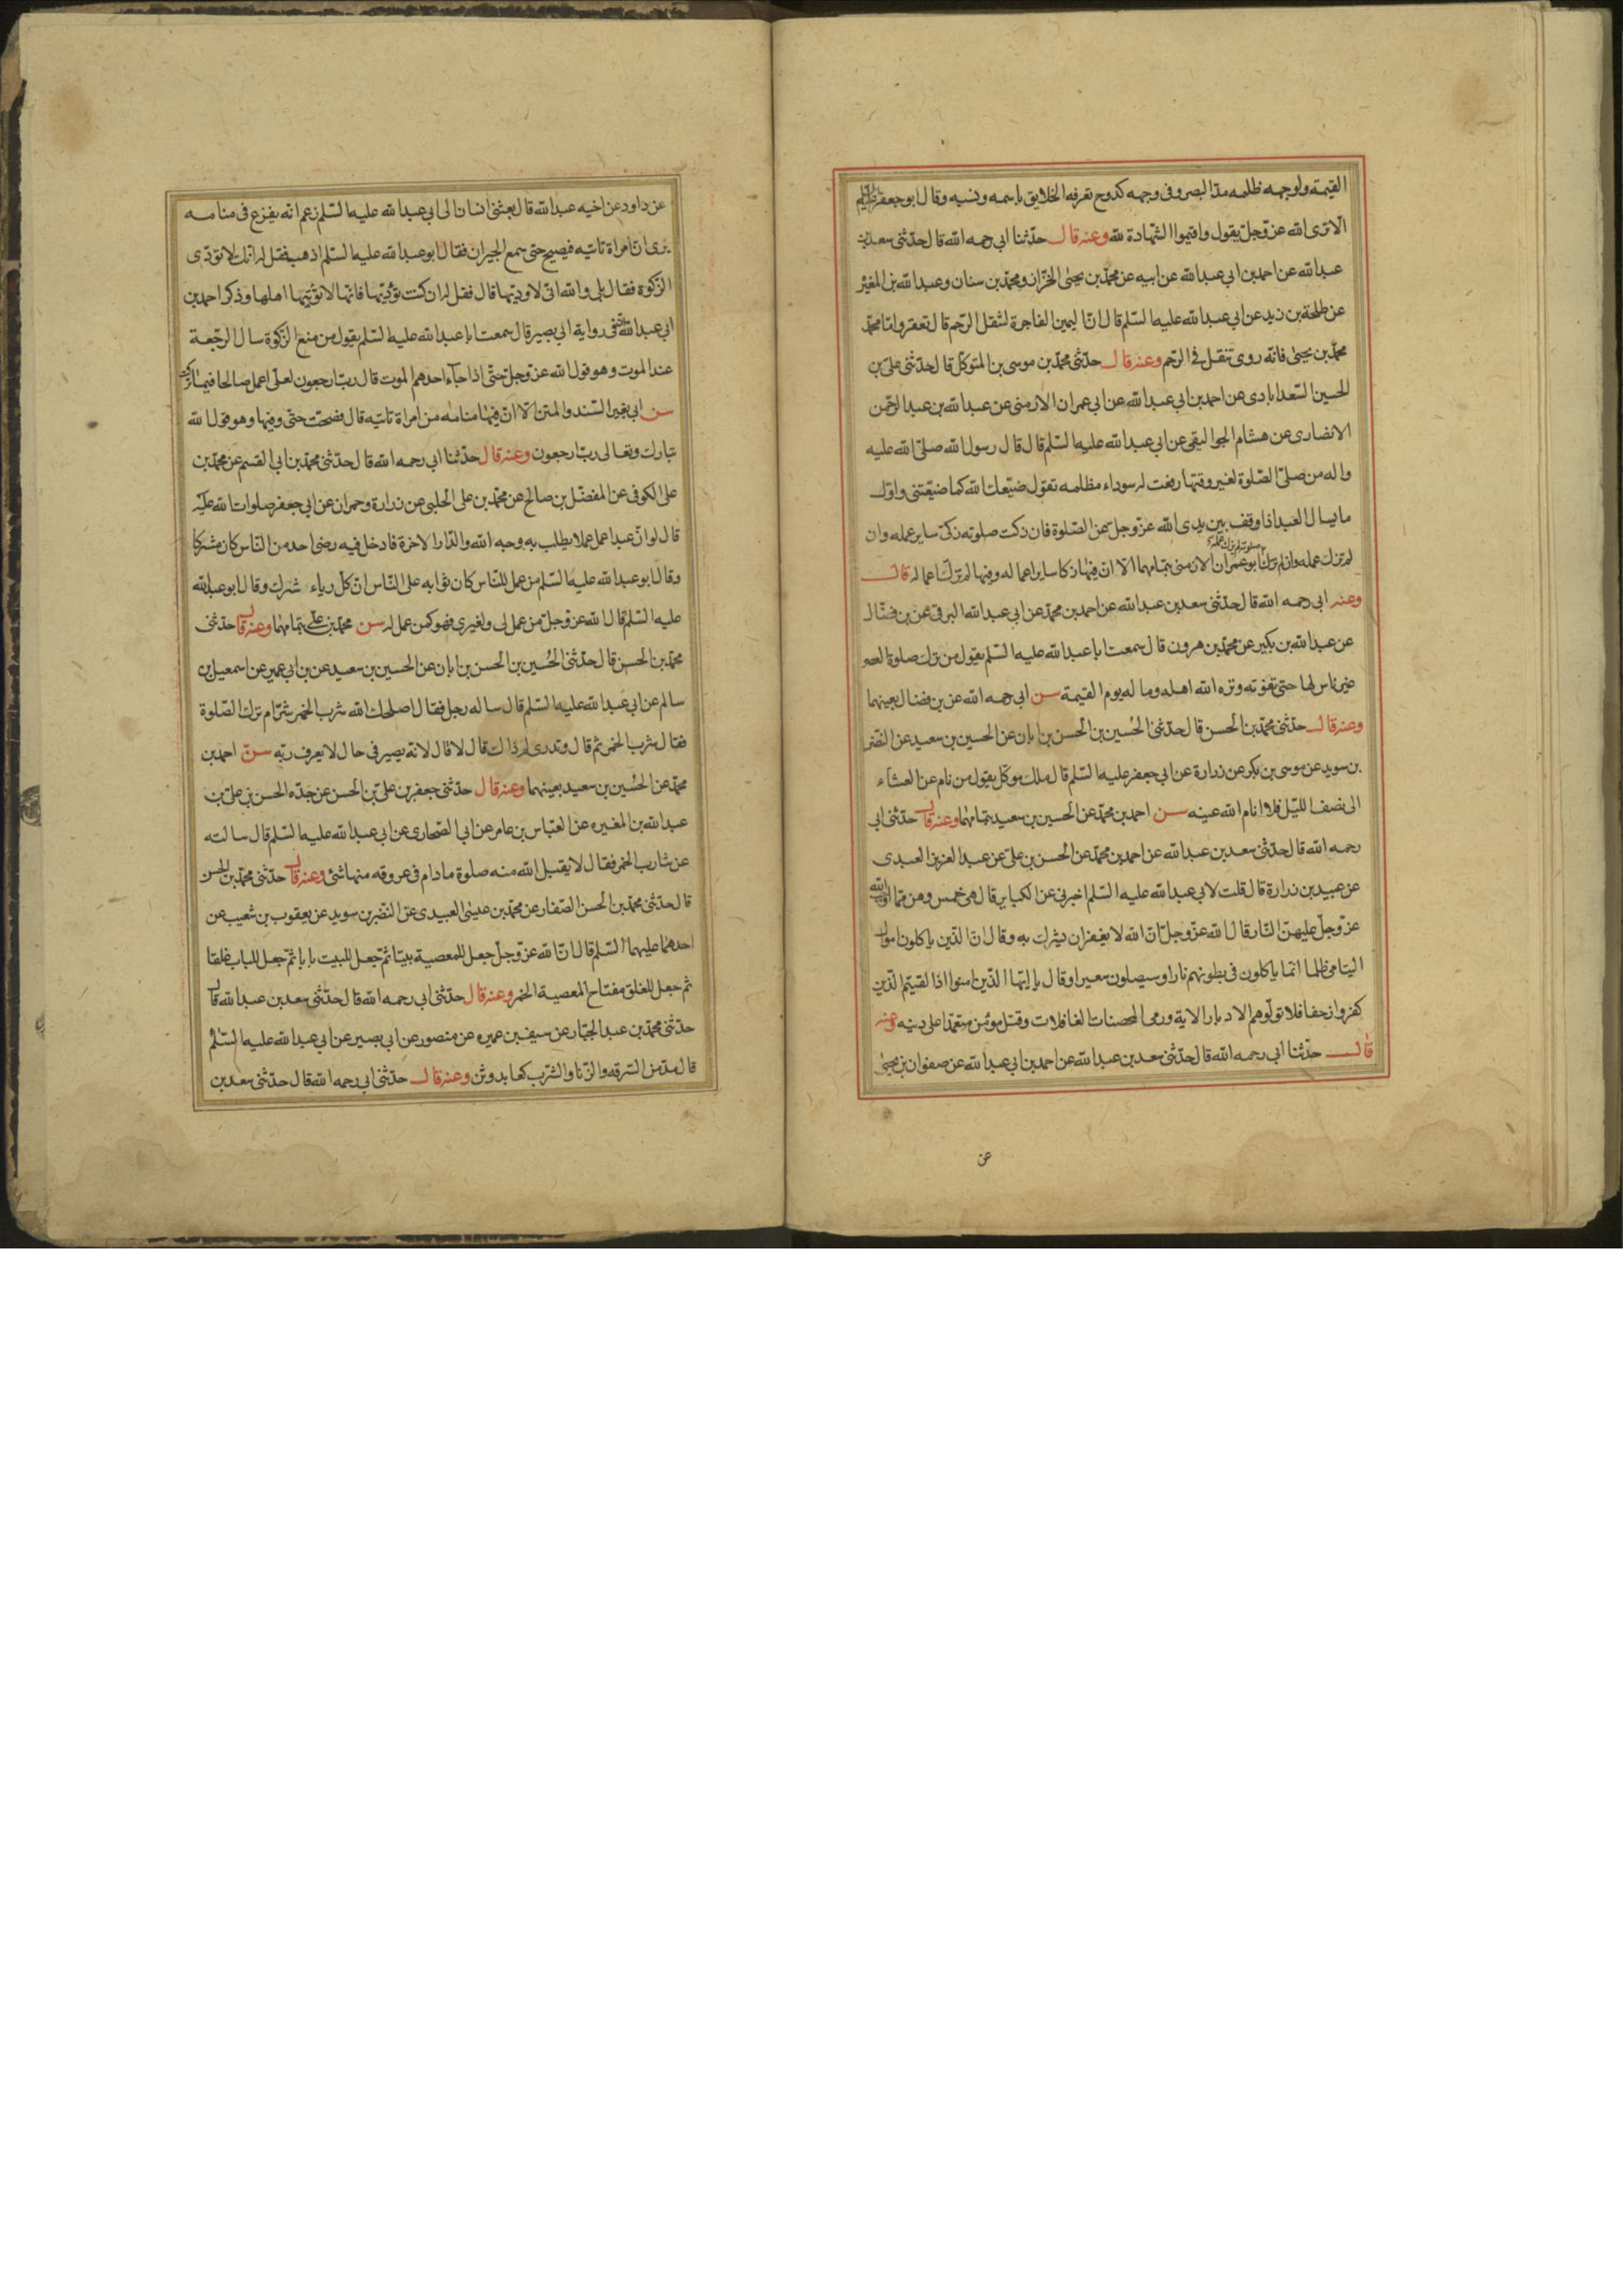 القيمة ولوجهه ظلمه مد البصر وفى وجهه كدوح تعرفه الخلايق باسمه ونسبه وقال ابو جعفر عليه السلم
الا ترى الله عز وجل يقول واقيموا الشهادة لله وعنه قال حدثنا ابى رحمه الله قال حدثنى سعد بن
عبدالله عن احمد بن ابى عبدالله عن ابيه عن محمد بن يحيى الخزاز ومحمد بن سنان وعبدالله بن المغيره
عن طلحة بن زيد عن ابى عبدالله عليه السلم قال ان اليمين الفاجرة لتنقل الرحم قال تعقر واما محمد
محمد بن يحيى فانه روى تنقل فى الرحم وعنه قال حدثنى محمد بن موسى بن المتوكل قال حدثنى على بن
الحسين السعدابادى عن احمد بن ابى عبدالله عن ابى عمران الارمنى عن عبدالله بن عبدالرحمن
الانصارى عن هشام الجواليقى عن ابى عبدالله عليه السلم قال قال رسول الله صلى الله عليه
واله من صلى الصلوة لغير وقتها رفعت له سوداء مظلمه تقول ضيعك الله كما ضيعتنى واول
ما يسال العبد اذا وقف بين يدى الله عز وجل عن الصلوة فان زكت صلوته زكى ساير عمله وان
لم تزك عمله وان لم تزك ابو عمران الارمنى بتمامهما الا ان فيها زكا ساير اعماله وفيها لم تزك اعماله قال
وعنه ابى رحمه الله قال حدثنى سعد بن عبدالله عن احمد بن محمد عن ابى عبدالله البرقى عن بن فضال
عن عبدالله بن بكير عن محمد بن هرون قال سمعت ابا عبدالله عليه السلم يقول من ترك صلوة العصر
غير ناس لها حتى تفوته وتره الله اهله وماله يوم القيمة سن ابى رحمه الله عن بن فضال بعينهما
وعنه قال حدثنى محمد بن الحسن قال حدثنى الحسين بن الحسن بن ابان عن الحسين بن سعيد عن النضر
بن سويد عن موسى بن بكر عن زرارة عن ابى جعفر عليه السلم قال ملك موكل يقول من نام عن العشاء
الى نصف الليل فلا انام الله عينه سن احمد بن محمد عن الحسين بن سعيد بتمامها وعنه قال حدثنى ابى
رحمه الله قال حدثنى سعد بن عبدالله عن احمد بن محمد عن الحسن بن على عن عبدالعزيز العبدى
عن عبيد بن زرارة قال قلت لابى عبدالله عليه السلم اخبرنى عن الكباير قال هى خمس وهن مما اوجب الله
عز وجل عليهن النار قال الله عز وجل ان الله لا يغفر ان يشرك به وقال ان الذين ياكلون اموال
اليتامى ظلما انما ياكلون فى بطونهم نارا وسيصلون سعيرا وقال يا ايها الذين امنوا اذا لقيتم الذين
كفروا زحفا فلا تولوهم الادبار الاية ورمى المحصنات الغافلات وقتل مؤمن متعمدا على دينه وعنه
قال حدثنا ابى رحمه الله قال حدثنى سعد بن عبدالله عن احمد بن ابى عبدالله عن صفوان بن يحيى
عن
عن داود عن اخيه عبدالله قال بعثنى انسان الى ابى عبدالله عليه السلم زعم انه يفزع فى منامه
يرى ان امراة تاتيه فيصيح حتى سمع الجيران فقال ابو عبدالله عليه السلم اذهب فقل له انك لا تؤدى
الزكوة فقال بلى والله انى لاوديها قال فقل له ان كنت تؤديها فانها لا تؤتيها اهلها وذكر احمد بن
ابى عبدالله فى رواية ابى بصير قال سمعت ابا عبدالله عليه السلم يقول من منع الزكوة سال الرجعة
عند الموت وهو قول الله عز وجل حتى اذا جآء احدهم الموت قال رب ارجعون لعلى اعمل صالحا فيما تركت
سن ابى بغير السند والمتن الا ان فيها منامه من امراة تاتيه قال فصحت حتى وفيها وهو قول الله
تبارك وتعالى رب ارجعون وعنه قال حدثنا ابى رحمه الله قال حدثنى محمد بن ابى القسم عن محمد بن
على الكوفى عن المفضل بن صالح عن محمد بن على الحلبى عن زرارة وحمران عن ابى جعفر صلوات الله عليه
قال لو ان عبدا عمل عملا يطلب به وجه الله والدار الاخرة فادخل فيه رضى احد من الناس كان مشركا
وقال ابو عبدالله عليه السلم من عمل للناس كان ثوابه على الناس ان كل رياء شرك وقال ابو عبدالله
عليه السلم قال الله عز وجل من عمل لى ولغيرى فهو كمن عمل له سن محمد بن على بتمامها وعنه قال حدثنى
محمد بن الحسن قال حدثنى الحسين بن الحسن بن ابان عن الحسين بن سعيد عن بن ابى عمير عن اسمعيل بن
سالم عن ابى عبدالله عليه السلم قال ساله رجل فقال اصلحك الله شرب الخمر شر ام ترك الصلوة
فقال شرب الخمر ثم قال وتدرى لم ذاك قال لا قال لانه يصير فى حال لا يعرف ربه سن احمد بن
محمد عن الحسين بن سعيد بعينهما وعنه قال حدثنى جعفر بن على بن الحسن عن جده الحسن بن على بن
عبدالله بن المغيره عن العباس بن عامر عن ابى الصحارى عن ابى عبدالله عليه السلم قال سالته
عن شارب الخمر فقال لا يقبل الله منه صلوة مادام فى عروقه منها شئ وعنه قال حدثنى محمد بن الحسن
قال حدثنى محمد بن الحسن الصفار عن محمد بن عيسى العبيدى عن النضر بن سويد عن يعقوب بن شعيب عن
احدهما عليهما السلم قال ان الله عز وجل جعل للمعصية بيتا ثم جعل للبيت بابا ثم جعل للباب غلقا
ثم جعل للغلق مفتاح المعصية الخمر وعنه قال حدثنى ابى رحمه الله قال حدثنى سعد بن عبدالله قال
حدثنى محمد بن عبدالجبار عن سيف بن عميره عن منصور عن ابى بصير عن ابى عبدالله عليه السلم
قال مدمن السرقه والزنا والشرب كعابد وثن وعنه قال حدثنى ابى رحمه الله قال حدثنى سعد بن